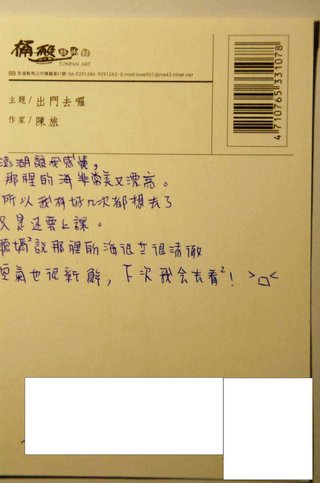 桶盤
TUNPAN ART
主題/出門去囉
作家/陳旅
4710765331078
澎湖讓我感覺,
那裡的海非常美又漂亮。
所以我有好几次都想去了
又是还要上課。
聽媽²說那裡的海很藍很清徹
空氣也很新鮮,下次我会去看²! >□<